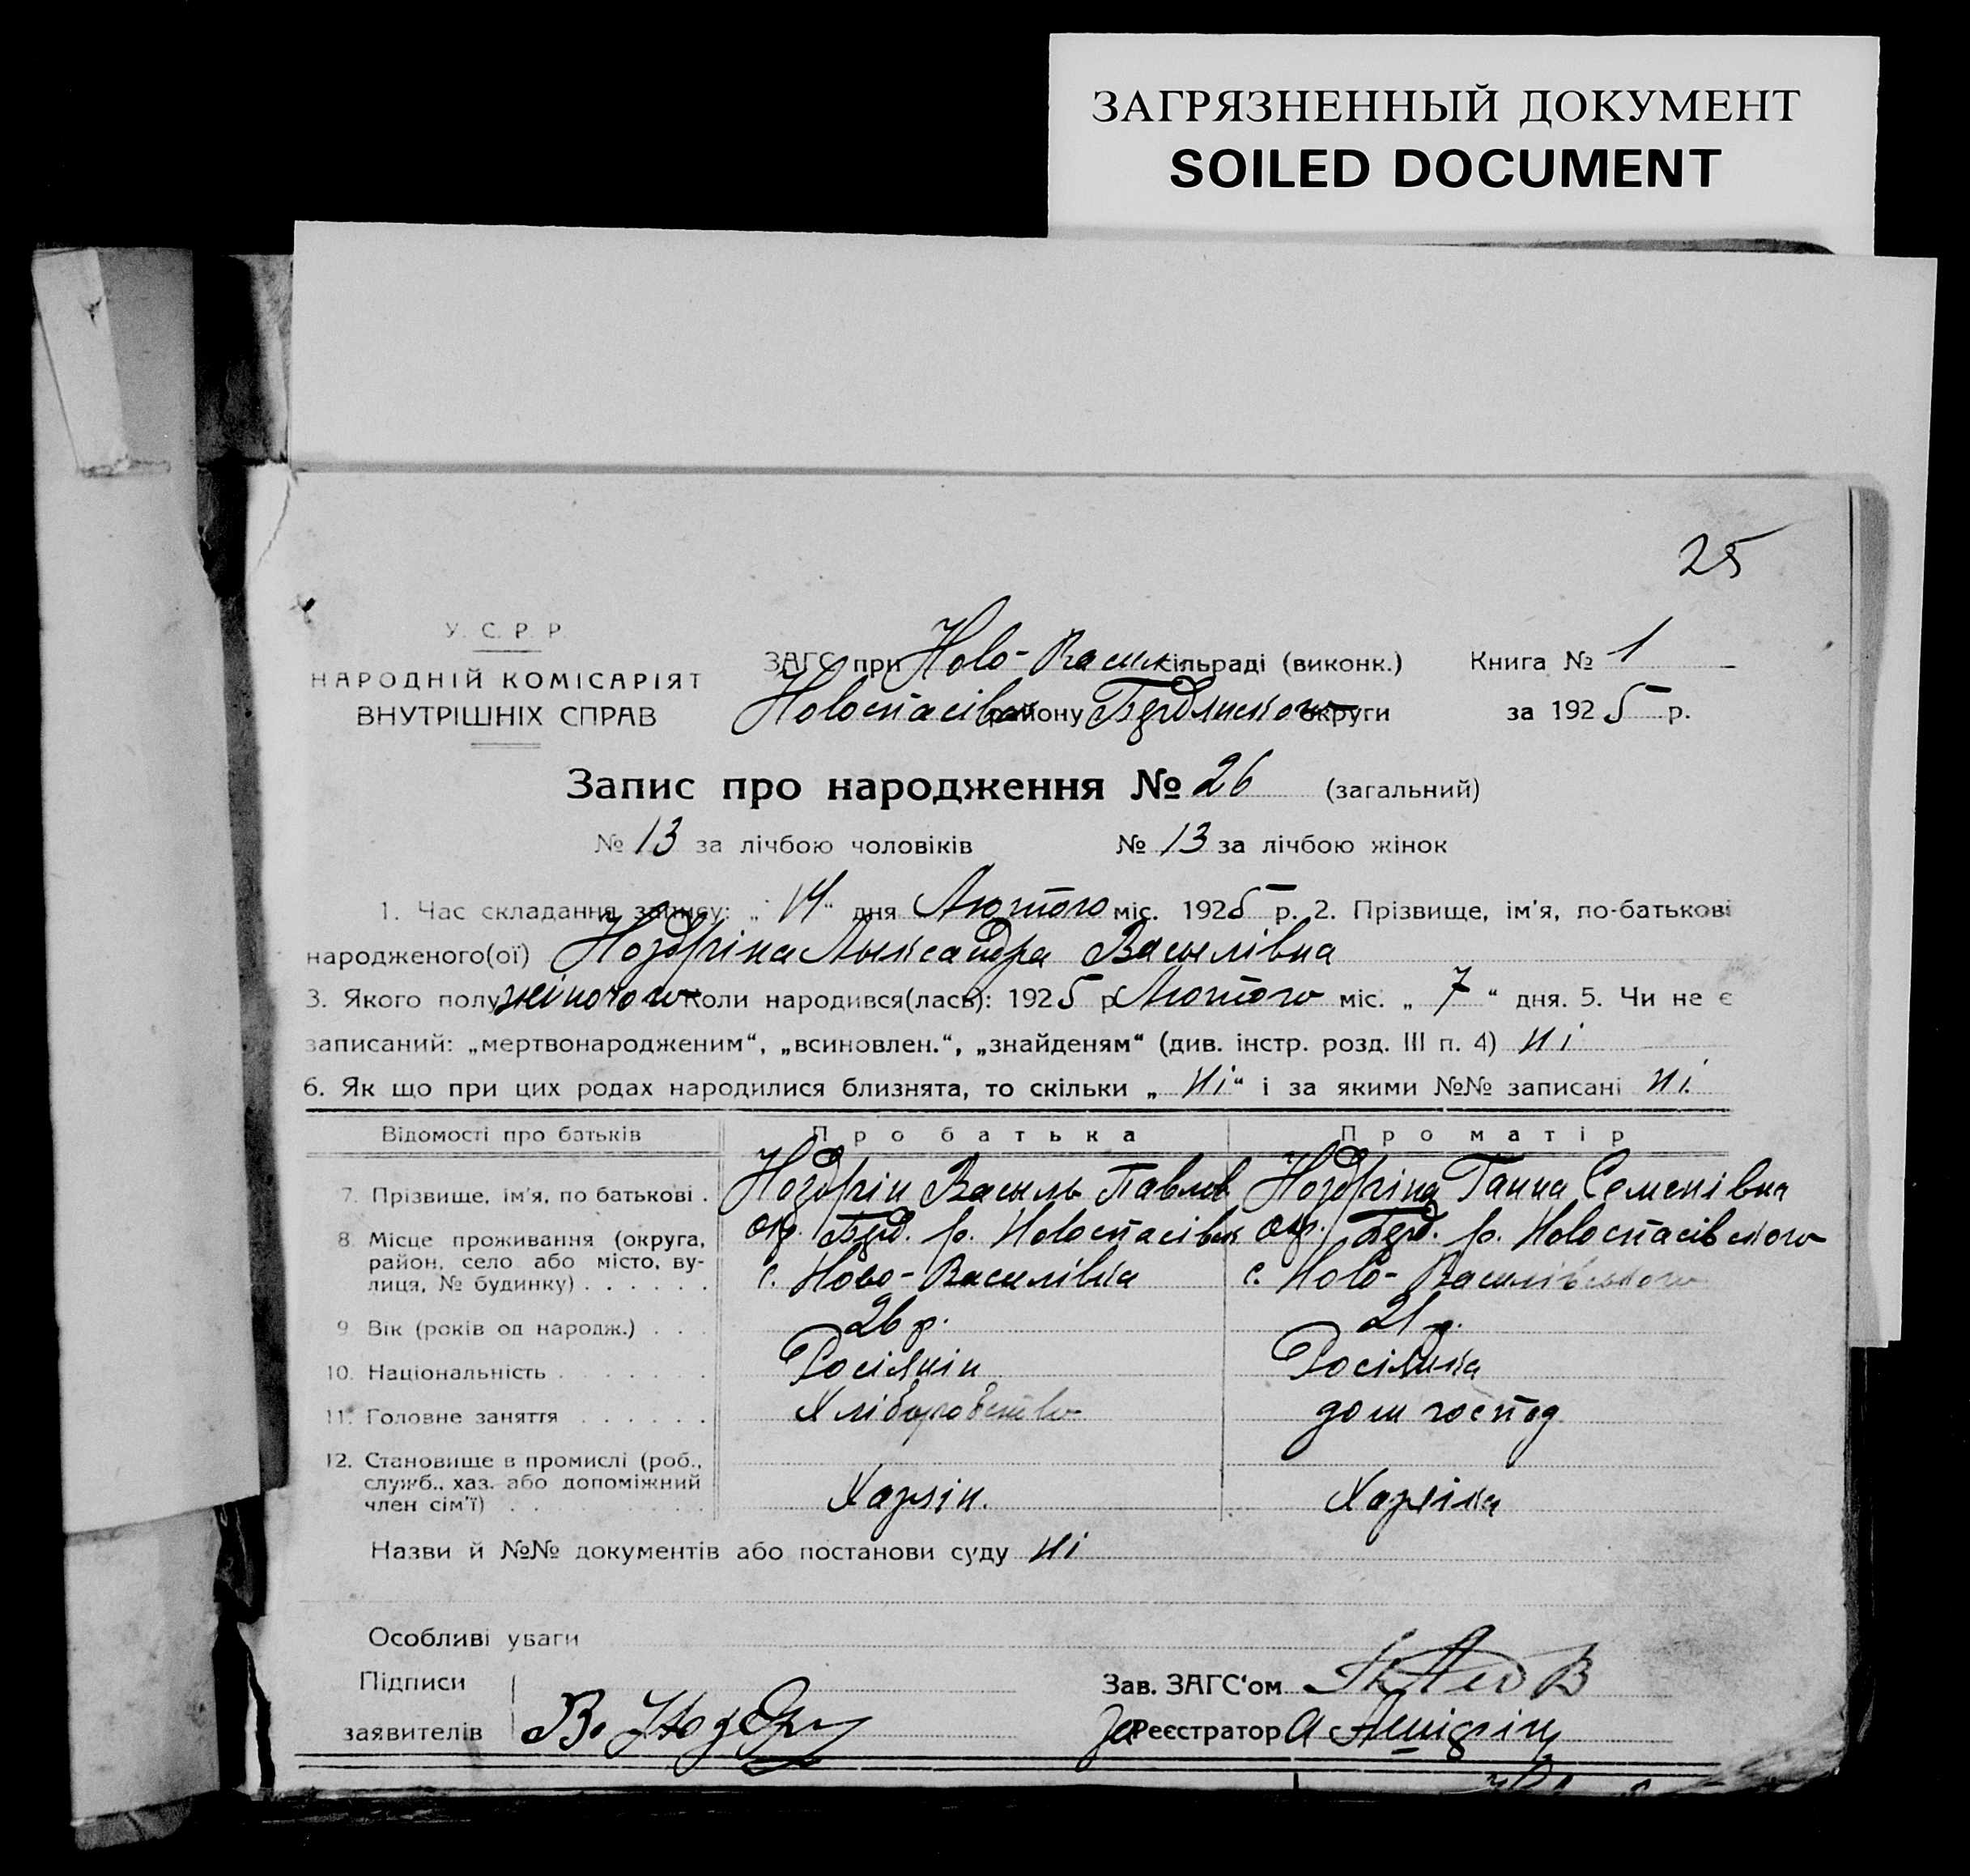 ЗАГРЯЗНЕННЫЙ ДОКУМЕНТ
SOILED DOCUMENT
25
У. С. Р. Р.
НАРОДНІЙ КОМІСАРІЯТ
ВНУТРІШНІХ СПРАВ
ЗАГС при Ново-Васил. сільраді (виконк.) Книга № 1
Новоспасівськ району Бердянсько округи за 1925 р.
Запис про народження № 26 (загальний)
№ 13 за лічбою чоловіків № 13 за лічбою жінок
1. Час складання запису: „14" дня Лютого міс. 1925 р. 2. Прізвище, ім'я, по-батькові
народженого(ої) Ноздріна Александра Василівна
3. Якого полу жіночого Коли народився(лась): 1925 р. Лютого міс. „ 7 " дня. 5. Чи не є
записаний: „мертвонародженим", „всиновлен.", „знайденям" (див. інстр. розд. III п. 4) Ні
6. Як що при цих родах народилися близнята, то скільки „ Ні " і за якими №№ записані Ні.
Відомості про батьків Про батька Про матір
7. Прізвище, ім'я, по батькові . Ноздрін Василь Павлов Ноздріна Ганна Семенівна
8. Місце проживання (округа, район, село або місто, вулиця, № будинку) . . . . . . окр. Берд. р. Новоспасівськ окр. Берд. р. Новоспасівского
с. Ново-Василівка с. Ново-Василівського
9. Вік (років од народж.) . . . 26 р. 21 р.
10. Національність . . . . . . . Росіянін Росіянка
11. Головне заняття . . . . . . Хліборобство дом господ
12. Становище в промислі (роб., служб., хаз. або допоміжний член сім'ї) . . Хазяін. Хазяіка
Назви й №№ документів або постанови суду Ні
Особливі уваги
Підписи
заявителів В. Ноздр
Зав. ЗАГС'ом
За Реєстратор